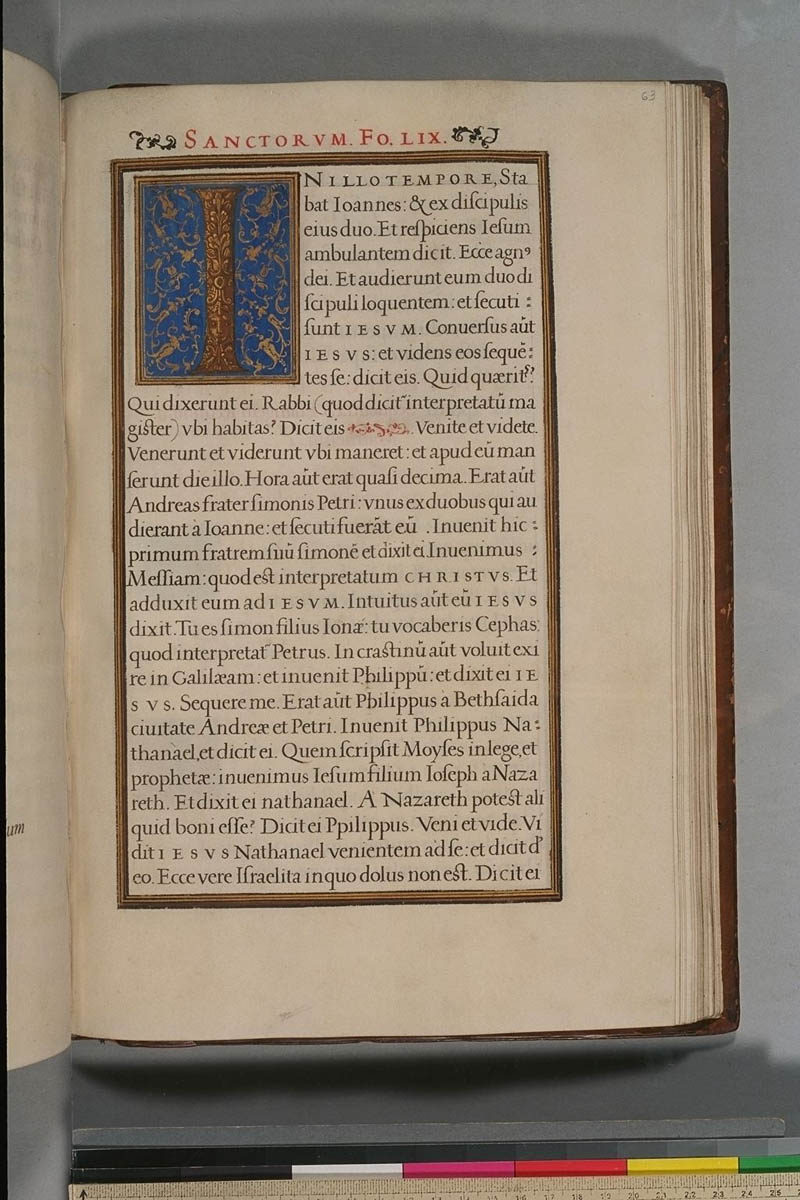 63
SANCTORVM. FO. LIX.
IN ILLO TEMPORE, Sta
bat Ioannes: & ex diſcipulis
eius duo. Et reſpiciens Ieſum
ambulantem dicit. Ecce agnꝰ
dei. Et audierunt eum duo di
ſcipuli loquentem: et ſecuti :
ſunt IESVM. Conuerſus aūt
IESVS: et videns eos ſequē:
tes ſe: dicit eis. Quid quærit⁹?
Qui dixerunt ei. Rabbi (quod dicit᷑ interpretatū ma
giſter) vbi habitas? Dicit eis. Venite et videte.
Venerunt et viderunt vbi maneret: et apud eū man
ſerunt die illo. Hora aūt erat quaſi decima. Erat aūt
Andreas frater ſimonis Petri: vnus ex duobus qui au
dierant a Ioanne: et ſecuti fuerāt eū . Inuenit hic :
primum fratrem ſuū ſimonē et dixit ei. Inuenimus :
Meſſiam: quod eſt interpretatum CHRISTVS. Et
adduxit eum ad IESVM. Intuitus aūt eū IESVS
dixit. Tu es ſimon filius Ionæ: tu vocaberis Cephas:
quod interpretat᷑ Petrus. In craſtinū aūt voluit exi
re in Galilæam: et inuenit Philippū: et dixit ei IE
SVS. Sequere me. Erat aūt Philippus a Bethſaida
ciuitate Andreæ et Petri. Inuenit Philippus Na:
thanael, et dicit ei. Quem ſcripſit Moyſes in lege, et
prophetæ: inuenimus Ieſum filium Ioſeph a Naza
reth. Et dixit ei nathanael. A Nazareth poteſt ali
quid boni eſſe? Dicit ei Ppilippus. Veni et vide. Vi
dit IESVS Nathanael venientem ad ſe: et dicit d'
eo. Ecce vere Iſraelita in quo dolus non eſt. Dicit ei
um